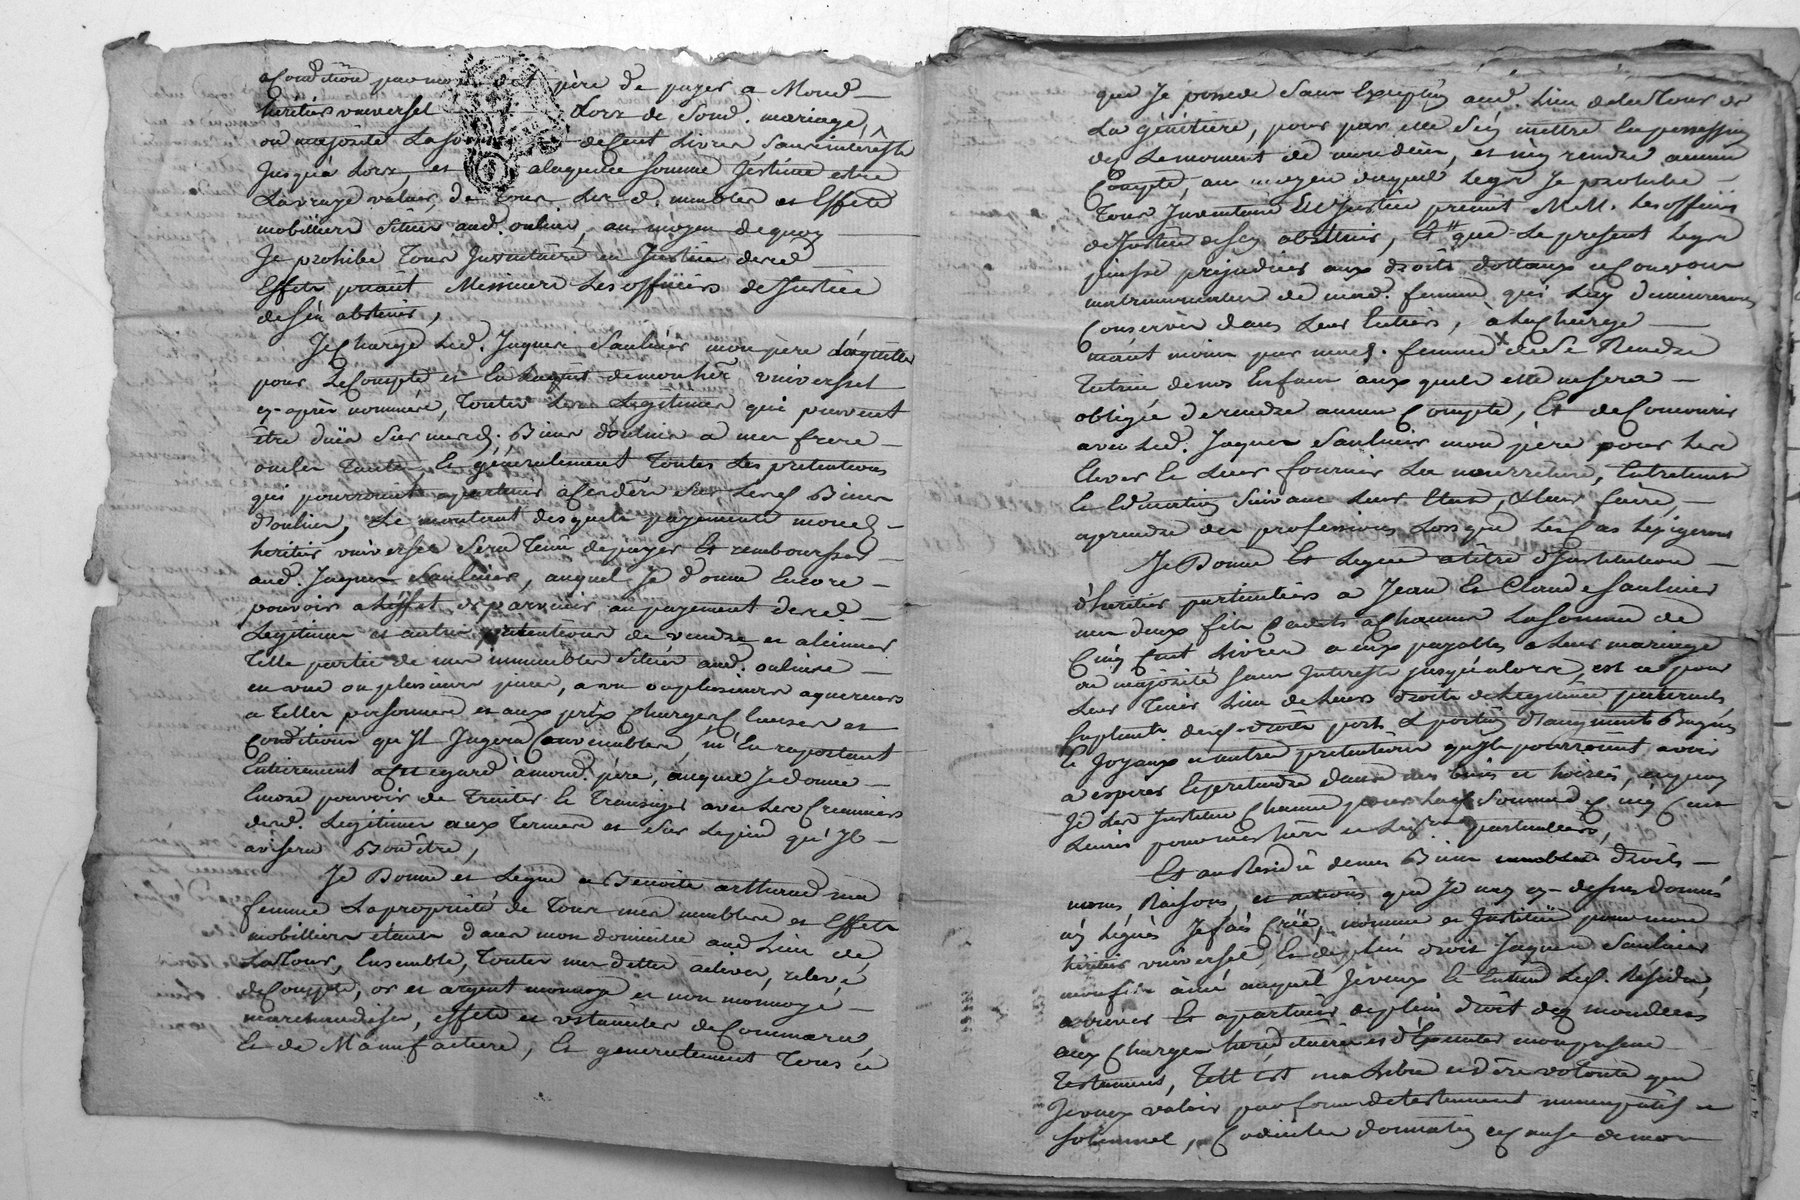 Condition par mond. père de payer a Mond.
héritier universel lors de Sond. mariage,
ou majorité La so de Cent Livres Sans interêsts
Jusqu'à Lors, et a laquelle somme J'estime estre
La vraye valeur de Tous Lesd. meubles et Effets
mobilliers Situés aud. oulins, au moyen de quoy
Je prohibe Tous Inventaire en Justice desd.
Effets priant Messieurs Les officiers de Justice
de s'en abstenir,
Je Charge Led. Jaques Saulnier mon père d'aquitter
pour Le Compte et En de mon hér. universel
cy-après nommé, Toutes Les Legitimes qui peuvent
être düës Sur mesd. Biens d'oulins a mes frere
ou Tante, et généralement Toutes Les pretentions
qui pourroient apartenir Sur Lesd. Biens
d'oulins, Le montant desquels payements mond.
heritier universel Sera Tenu de payer Et rembourser
aud. Jaques Saulnier, auquel Je donne Encore
pouvoir a L'effet de parvenir au payement desd.
Legitimes et autres prétentions de vendre et aliener
Telle partie de mes immeubles Situés aud. oulins
en une ou plusieurs pieces, a un ou plusieurs aquereurs
a Telles personnes et aux prix Charges Clauses et
Conditions qu'Il Jugera Convenables, m'En raportant
Entierement a Cet Egard a mond. père, auquel Je donne
Encore pouvoir de Traiter et Transiger avec Les Creanciers
desd. Legitimes aux Termes et Sur Le pied qu'Il
avisera Bon être,
Je Donne et Legue a Benoite arthaud ma
femme La proprieté de Tous mes meubles et Effets
mobilliers étants dans mon domicille aud. Lieu de
LaTour, Ensemble, Toutes mes dettes actives, relevé
de Compte, or et argent monnoyé et non monnoyé
marchandises, effets et ustanciles de Commerce,
Et de Manufacture, Et generalement Tous ce
que Je possede Sans Exception aud. Lieu de LaTour de
La génetiere, pour par elle S'en mettre En possession
dès Le moment de mon décès, et n'en rendre aucun
Compte, au moyen duquel Legs Je prohibe
Tous Inventaire En Justice priant M.M. Les officiers
de Justice de s'en abstenir, Et que Le présent Legs
puisse préjudicier aux droits dottaux et Conventions
matrimoniales de mad. femme qui Luy demeureront
Conservés dans Leur Entier, a La Charge
néant moins par mad. femme de Se Rendre
Tutrice de nos Enfans aux quels elle ne sera
obligée de rendre aucun Compte, Et de Concourir
avec Led. Jaques Saulnier mon père pour Les
Elever Et Leur fournir La nourriture, Entretient
Et Education Suivant Leur Etat, & Leur faire
aprendre des professions Lorsque Les Cas L'exigeront
Je Donne Et Legue a titre d'Institution
d'heritier particuliers a Jean Et Claude Saulnier
mes deux fils Cadets a Chacun La Somme de
Cinq Cent Livres a eux payable a Leur mariage
ou majorité Sans Interests jusqu'alors, est ce pour
Leur Tenir Lieu de Leurs droits de Legitime paternels
Suplement desd. droits part & portion d'augment Bagues
Et Joyaux et autres pretentions qu'ils pourroient avoir
a esperer Et pretendre dans mes biens et hoiries, auquoy
Je Les Institue Chacun pour Lad. Somme de Cinq Cent
Livres pour mes hérs. et Legres. particuliers,
Et au Residu de mes Biens meubles droits
noms Raisons, et actions que Je n'ay cy-dessus donnés
ny Légués Je fais Créé, nomme et Institüe pour mon
héritier universel, Et de plein droit Jaques Saulnier
mon fils ainé auquel Je veux Et Entend Led. Résidu,
arriver Et apartenir de plein droit dès mon décès
aux Charges héréditaires et d'Executer mon présent
Testament, Telle Est ma Libre et dère. volonté que
Je veux valoir par forme de testament nuncupatif et
solemnel, Codicille donnation et Cause de mort